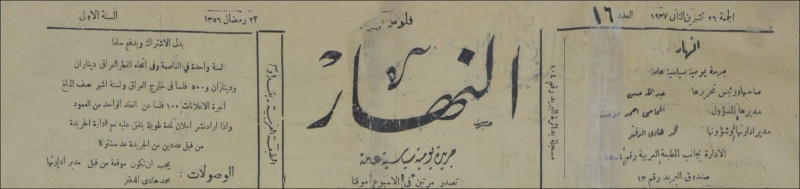 الجمعة ٢٦ تشرين الثاني ١٩٣٧
العدد ١٦
٤ فلوس
٢٢ رمضان ١٣٥٦
السنة الاولى
النهار
جريدة يومية سياسية عامة
صاحبها ورئيس تحريرها عبدالله حسن
مديرها المسؤول المحامي احمد
مدير ادارتها وشؤونها محمد هادي الدفتر
الادارة بجانب المطبعة العربية رقم
صندوق البريد رقم ١٣
مسجلة بدائرة البريد رقم ١٠٤
النهار
جريدة يومية سياسية عامة
تصدر مرتين في الاسبوع موقتا
المطبعة العربية ـ بغداد
بدل الاشتراك ويدفع سلفا
لسنة واحدة في العاصمة وفي أنحاء القطر العراقي ديناران
وديناران و٥٠٠ فلسا في خارج العراق ولستة اشهر نصف المبلغ
اجرة الاعلانات ١٠٠ فلسا عن العقد الواحد من العمود
واذا اراد نشر اعلان لمدة طويلة يتفق عليه مع ادارة الجريدة
من قبل عددين من الجريدة عد مشتركا
الوصولات : يجب ان تكون موقعة من قبل مدير ادارتها
محمد هادي الدفتر